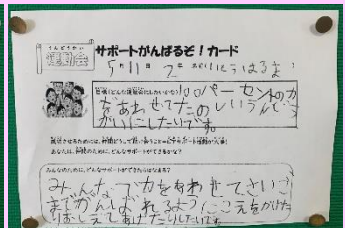 うんどうかい
運動会
サポートがんばるぞ！カード
5月11日 2年
目標(どんな運動会にしたいかな)100パーセントの力
をあわせてたのしいうんどう
かいにしたいです。
みんなのために、どんなサポートができたらいいかな？
みんなで力をあわせてさいご
までがんばれるようにこえをかけた
りおしえてあげたりしたいです。